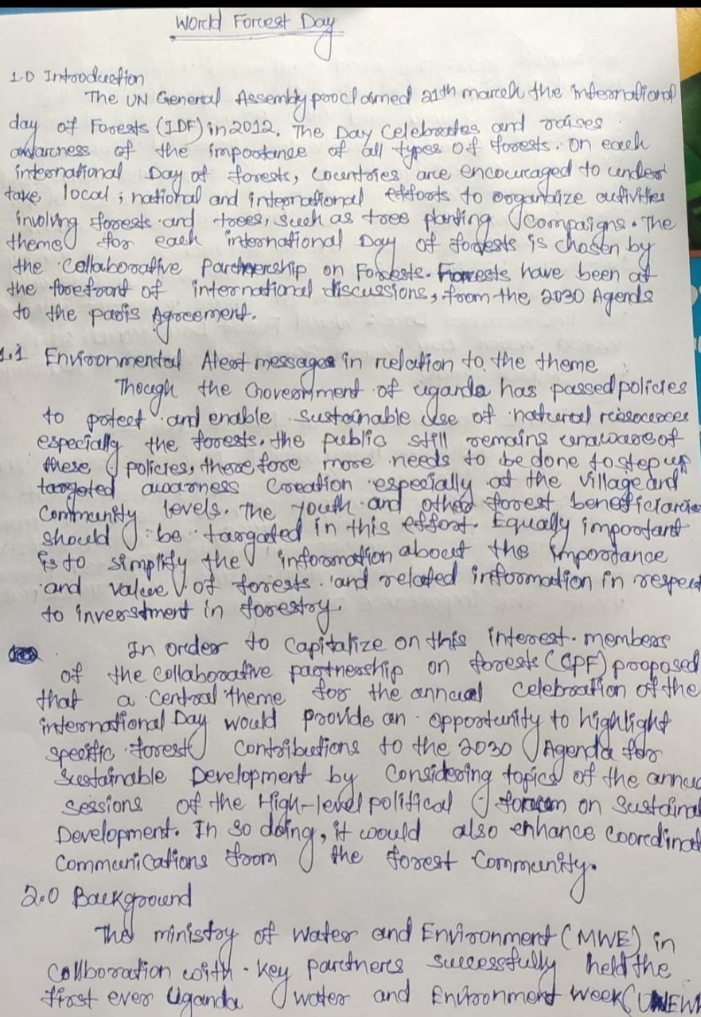 World Forest Day
1.0 Introduction
The UN General Assembly proclaimed 21th march the international
day of Forests (IDF) in 2012. The Day Celebrates and raises
awarness of the importance of all types of forests. on each
international Day of forests, countries are encouraged to under
take, local, national and international efforts to organize activities
involving forests and trees, such as tree planting compaigns. The
theme for each international Day of forests is chosen by
the Collaborative Partnership on Forests. Forests have been at
the forefront of international discussions, from the 2030 Agenda
to the paris Agreement.
1.1 Environmental Alert messages in relation to the theme
Though the Government of uganda has passed policies
to potect and enable sustainable use of natural resources
especially the forests. the public still remains unaware of
these policies, therefore more needs to be done to step up
targeted awarness Creation especially at the village and
Community levels. The youth and other forest beneficiaries
should be targated in this effort. Equally important
is to simplify the information about the importance
and value of forests and related information in respect
to inverstment in forestry.
In order to Capitalize on this interest. members
of the Collaborative partnership on forests (CPF) proposed
that a Central theme for the annual celebration of the
international Day would provide an opportunity to highlight
specific forest Contributions to the 2030 Agenda for
Sustainable Development by Considering topics of the annua
sessions of the High-level political forum on Sustainal
Development. In so doing, it would also enhance Coordinat
Communications from the forest Community.
2.0 Background
The ministry of Water and Environment (MWE) in
Collboration with key partners successfully held the
first ever Uganda water and Environment week (UWEW